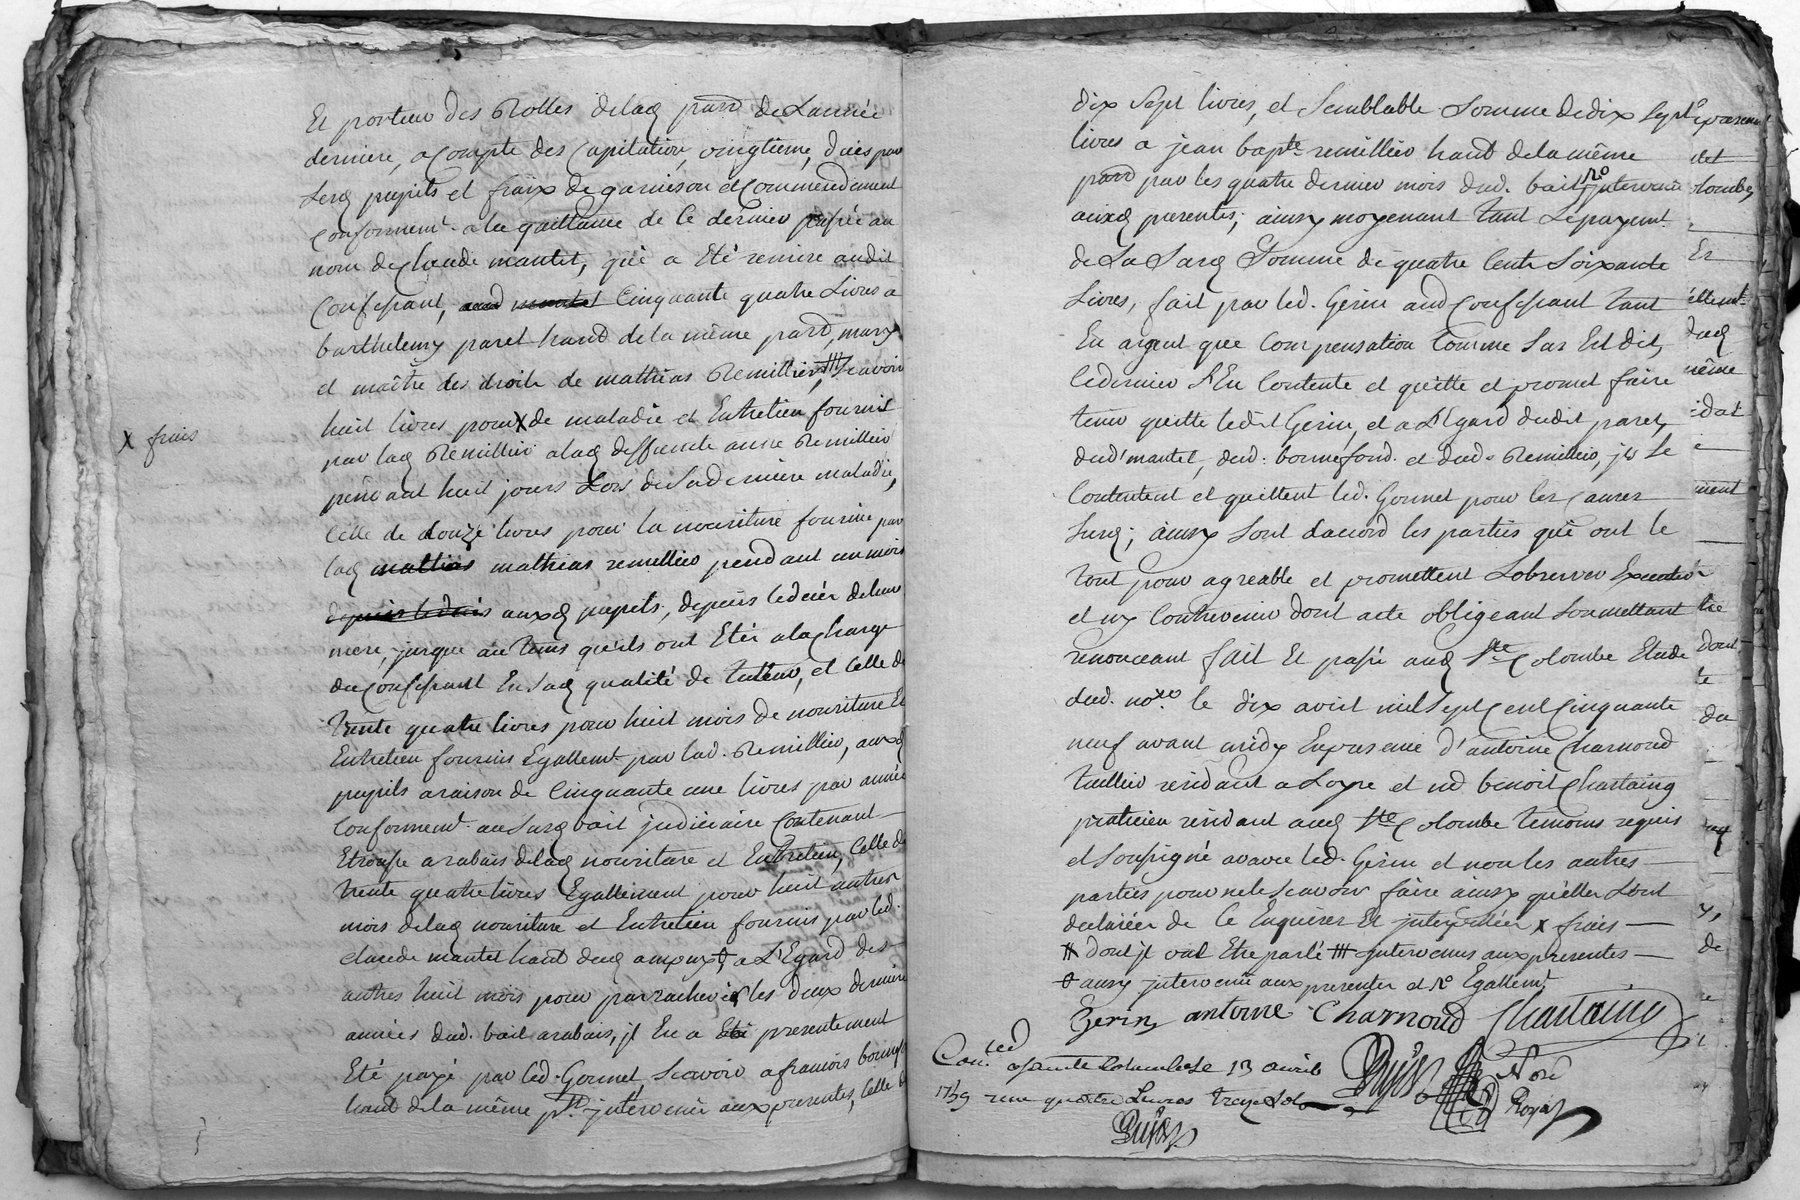 Et porteur des Rolles delad parr de Lannée
derniere, acompte des Capitation, vingtieme, düés par
Lesd pupils et fraix de garnison et Commendement
Conformemt. a la quittance de ce dernier passée au
nom de Claude mantet, qui a Eté remise audit
Confessant, aud mantet Cinquante quatre Livres a
barthelemy paret habt de la même parr, mary
et maître des droits de mathias Remillier, ⧻ Scavoir
huit livres pour X de maladie et Entretien fournis
X frais
par lad Remillier a lad deffunte anne Remillier
pendant huit jours Lors de Sa derniere maladie,
Celle de douze livres pour la nouriture fournie par
lad mathias mathias remillier pendant un mois
depuis le deces auxd pupils, depuis le deces de leur
mere, jusque au tems quils ont Etés a la Charge
du Confessant En Sad qualité de tuteur, et Celle de
trente quatre livres pour huit mois de nouriture Et
Entretien fournis Egallemt. par lad. Remillier, auxd
pupils a raison de Cinquante une livres par année
Conformemt. au Susd bail judiciaire Contenant
Etrousse a rabais delad nouriture et Entretien, Celle de
trente quatre livres Egallement pour huit autres
mois delad nouriture et Entretien fournis par led.
claude mantet habt dud ampuy ⸸, a L'Egard des
autres huit mois pour parrachever les deux derniere
années dud. bail a rabais, jl En a Eté presentement
Eté payé par led. Gonnet, Scavoir a francois bonnefond
habt de la même prr. jntervenu aux presentes, Celle de
dix Sept livres, et Semblable Somme de dix Sept
livres a jean bapte. remillier habt de la même
parr par les quatre dernier mois dud. bail, No jntervenu
auxd presentes; ainsy moyenant tant Le payemt.
de La Susd Somme de quatre Cents Soixante
Livres, fait par led. Gerin aud Confessant tant
En argent que Compensation Comme Sus Est dit,
ce dernier S'En Contente et quitte et promet faire
tenir quitte ledit Gerin, et a L'Egard dudit paret,
dud' mantet, dud. bonnefond. et dud. Remillier, jls Se
Contentent et quittent led. Gonnet pour les causes
Susd; ainsy Sont dacord les parties qui ont le
tout pour agreable et promettent Lobserver Executer
et ny Contrevenir dont acte obligeant Soumettant
renonceant fait Et passé aud Ste Colombe Etude
dud. nore. le dix avril mil Sept Cent Cinquante
neuf avant midy En presence d'antoine Charnoud
tuillier residant a Loyre et me benoit Chastaing
praticien residant aud Ste Colombe temoins requis
et Soussigné avavec led. Gerin et non les autres
parties pour ne le Scavoir faire ainsy quelles Sont
declarées de Ce Enquises Et jnterpellées X frais
⧺ dont jl ont Etre parlé ⧻ jntervenus aux presentes
⸸ aussy jntervenu aux presentes et No Egallemt.
Gerin antoine Charnoud Chastaing
Con. led a Sainte Colombe le 13 avril
1759 reçu quatre Livres treze Sols
Dujast
Nore
Royal
Dujast